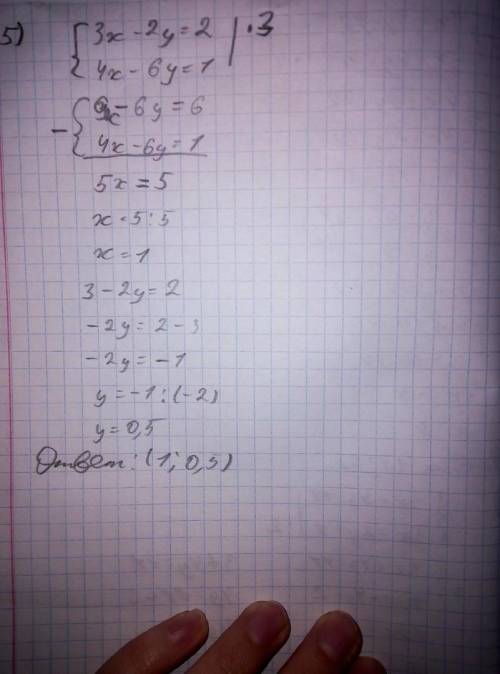 5) {3x - 2y = 2 | · 3
{4x - 6y = 1
- {9x - 6y = 6
{4x - 6y = 1
5x = 5
x = 5 : 5
x = 1
3 - 2y = 2
- 2y = 2 - 3
- 2y = - 1
y = - 1 : (-2)
y = 0,5
Ответ: (1; 0,5)